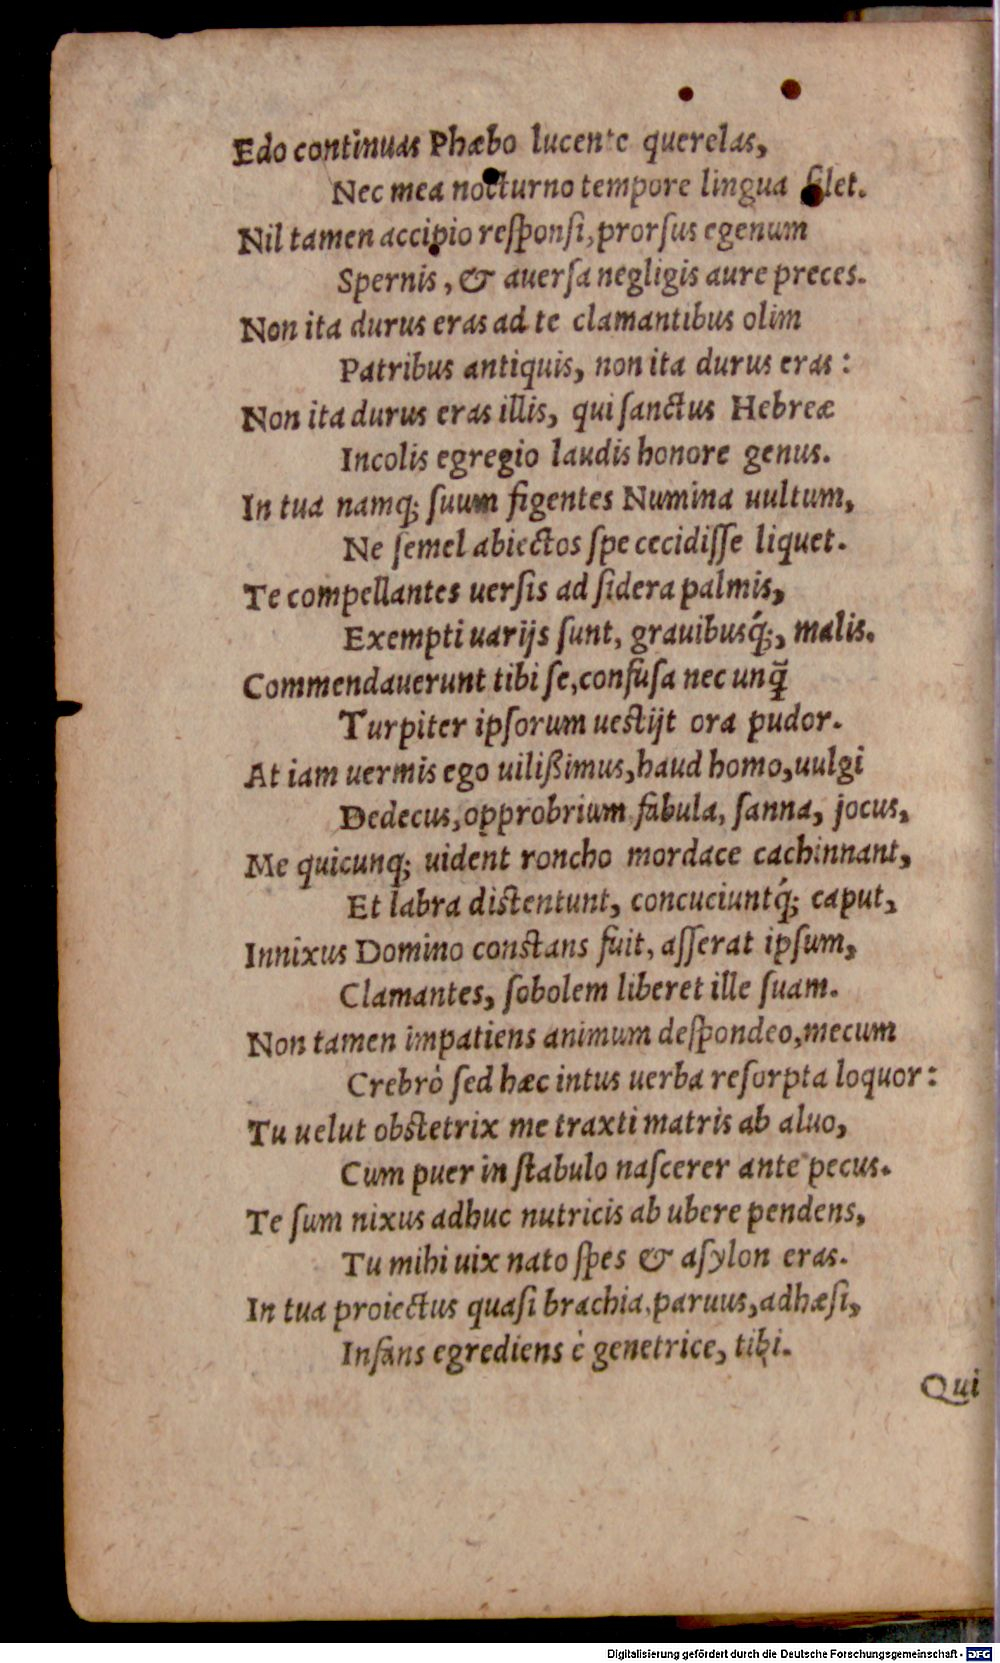 Edo continuas Phæbo lucente querelas,
Nec mea nocturno tempore lingua silet.
Nil tamen accipio responsi, prorsus egenum
Spernis, & auersa negligis aure preces.
Non ita durus eras ad te clamantibus olim
Patribus antiquis, non ita durus eras:
Non ita durus eras illis, qui sanctus Hebreæ
Incolis egregio laudis honore genus.
In tua namq; suum figentes Numina uultum,
Ne semel abiectos spe cecidisse liquet.
Te compellantes uersis ad sidera palmis,
Exempti uarijs sunt, grauibusq́;, malis.
Commendauerunt tibi se, confusa nec unq̃
Turpiter ipsorum uestijt ora pudor.
At iam uermis ego uilißimus, haud homo, uulgi
Dedecus, opprobrium fabula, sanna, jocus,
Me quicunq; uident roncho mordace cachinnant,
Et labra distentunt, concuciuntq́; caput,
Innixus Domino constans fuit, asserat ipsum,
Clamantes, sobolem liberet ille suam.
Non tamen impatiens animum despondeo, mecum
Crebrò sed hæc intus uerba resorpta loquor:
Tu uelut obstetrix me traxti matris ab aluo,
Cum puer in stabulo nascerer ante pecus.
Te sum nixus adhuc nutricis ab ubere pendens,
Tu mihi uix nato spes & asylon eras.
In tua proiectus quasi brachia, paruus, adhæsi,
Infans egrediens è genetrice, tibi.
Qui
Digitalisierung gefördert durch die Deutsche Forschungsgemeinschaft - DFG